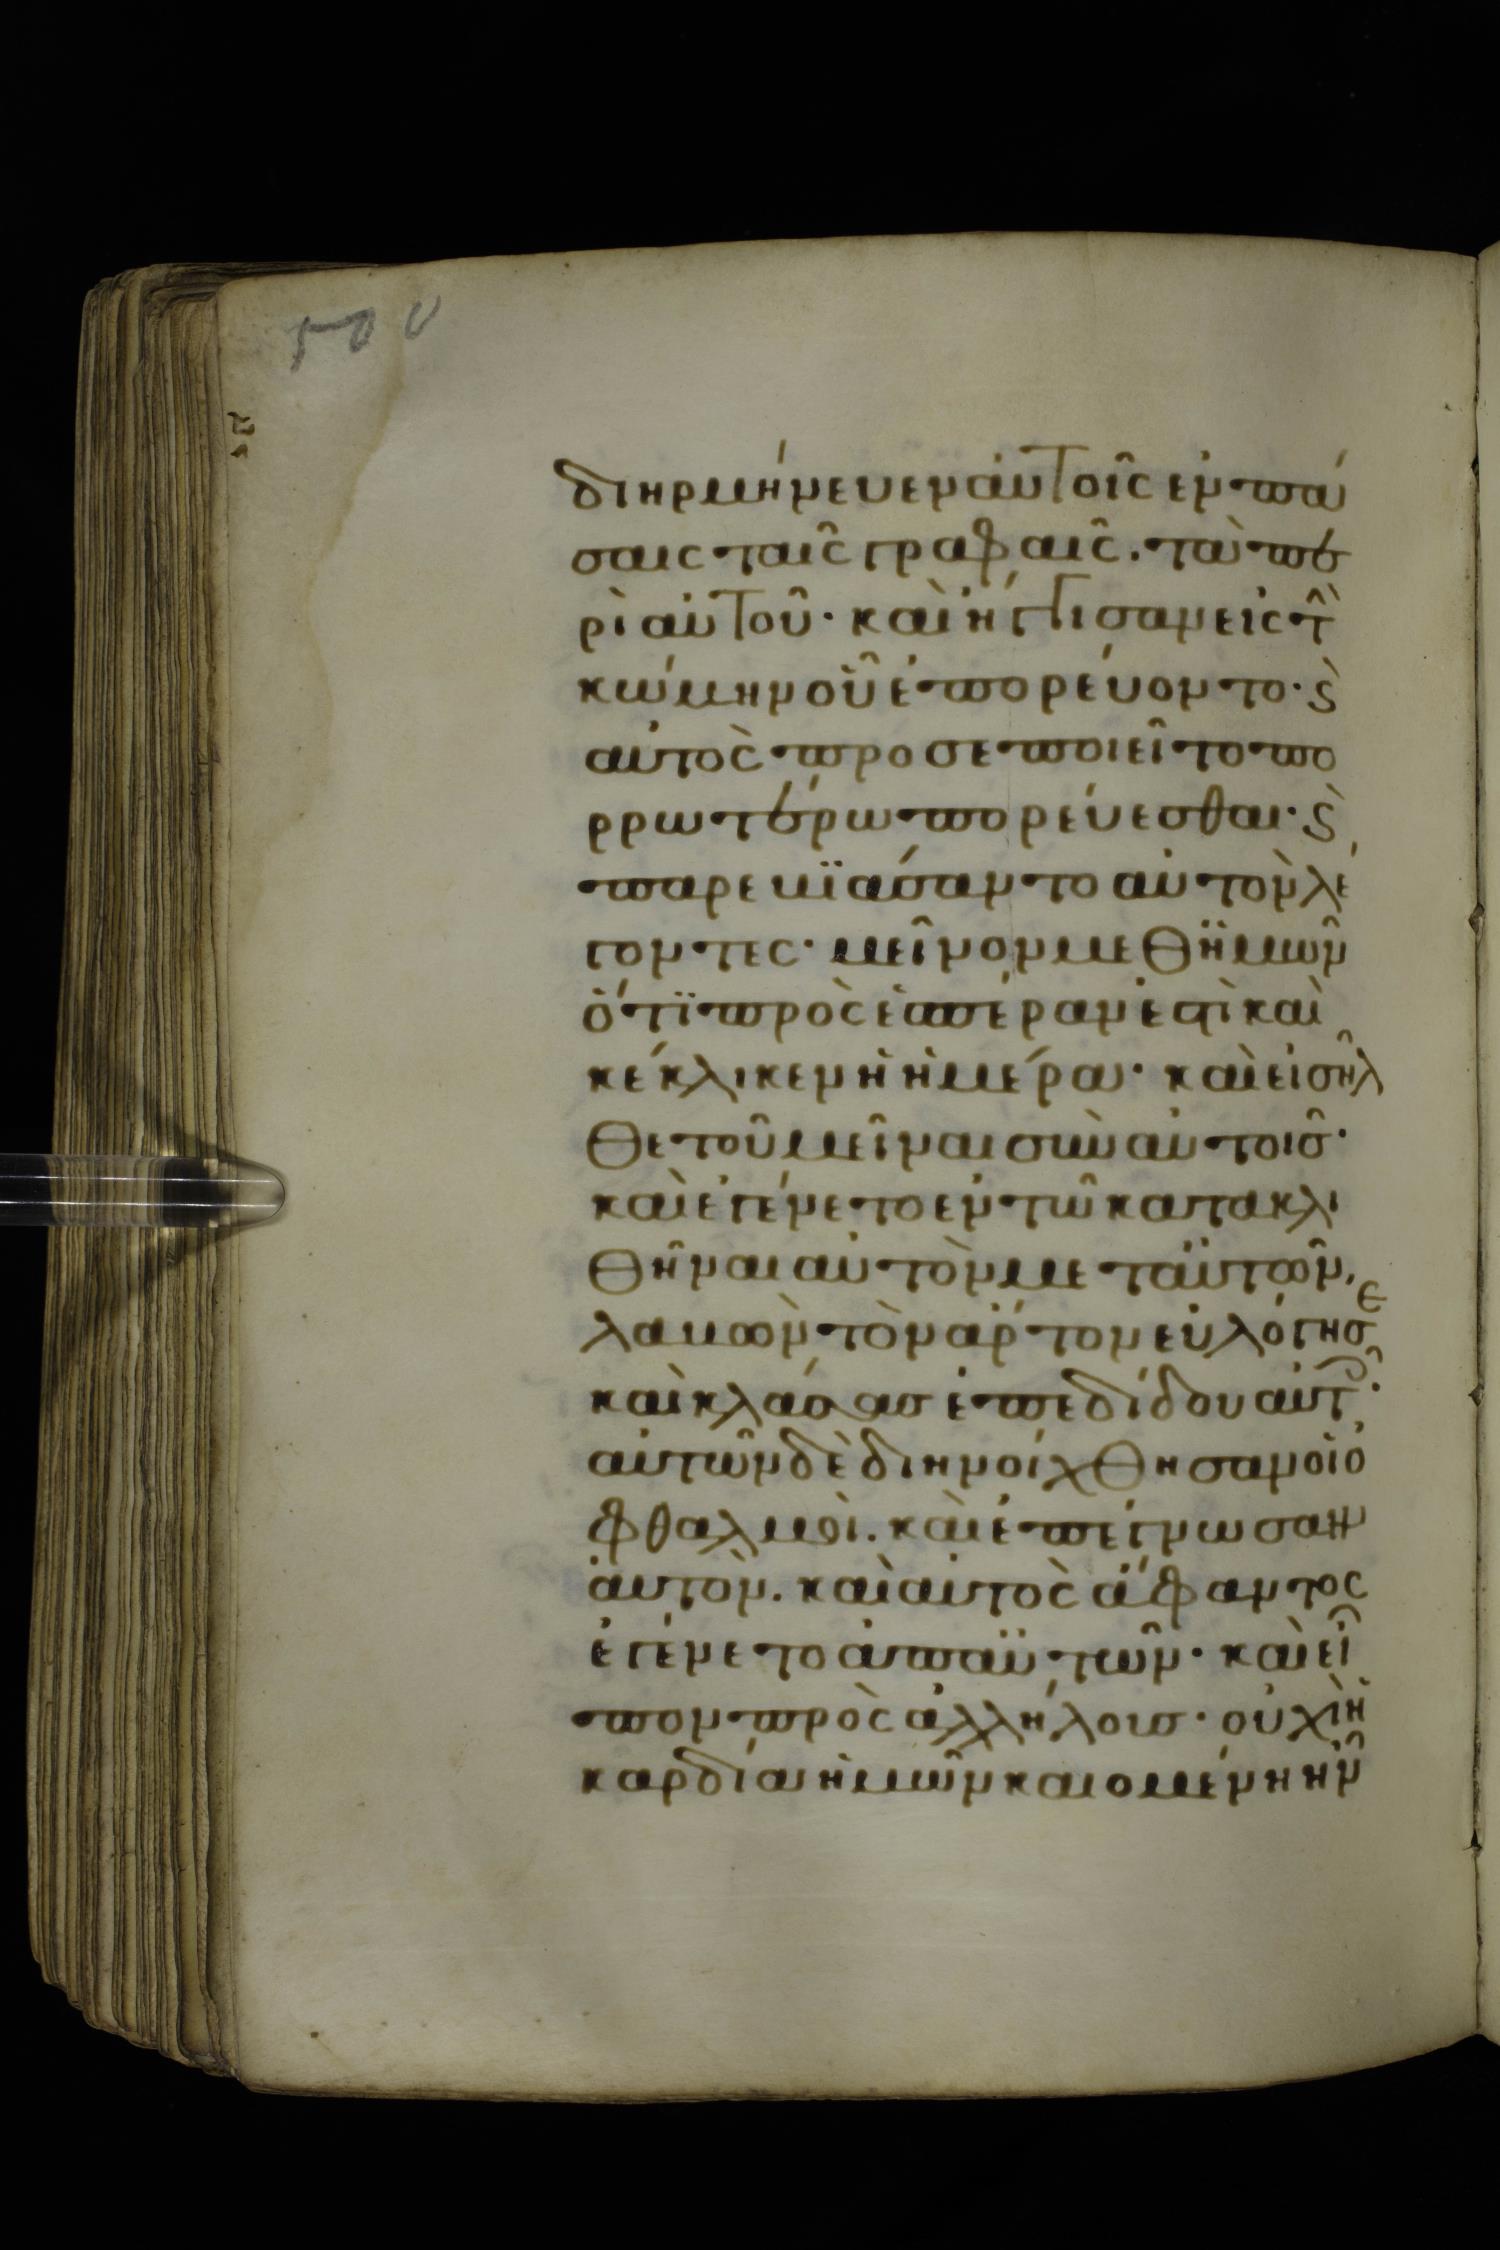 διηρμήνευεν αὐτοῖς ἐν πά
σαις ταῖς γραφαῖς. τὰ πε
ρὶ αὐτοῦ· καὶ ἤγγισαν εἰς τ̀
κώμην οὗ ἐπορεύοντο· ϛ̀
αὐτὸς προσεποιεῖτο πο
ρρωτέρω πορεύεσθαι· ϛ̀
παρεβϊάσαντο αὐτὸν λέ
γοντες· μεῖνον μεθ ἡμῶν
ὅτϊ πρὸς ἑσπέραν ἐστὶ καὶ
κέκλικεν ἡ ἡμέρα· καὶ εἰσῆλ
θε τοῦ μεῖναι σὺν αὐτοῖσ·
καὶ ἐγένετο ἐν τῶ κατακλι
θῆναι αὐτὸν μετ αὐτῶν,
λαβὼν τὸν ἄρτον εὐλόγησε
καὶ κλάσας ἐπεδίδου αὐτ͂·
αὐτῶν δὲ διηνοίχθησαν οἱ ὀ
φθαλμοὶ. καὶ ἐπέγνωσαν
ἀυτὸν. καὶ αὐτὸς ἄφαντος
ἐγένετο ἀπ αὐτῶν· καὶ εἶ
πον πρὸς ἀλλήλουσ· οὐχὶ ἡ
καρδία ἡμῶν καιομένη ἦν